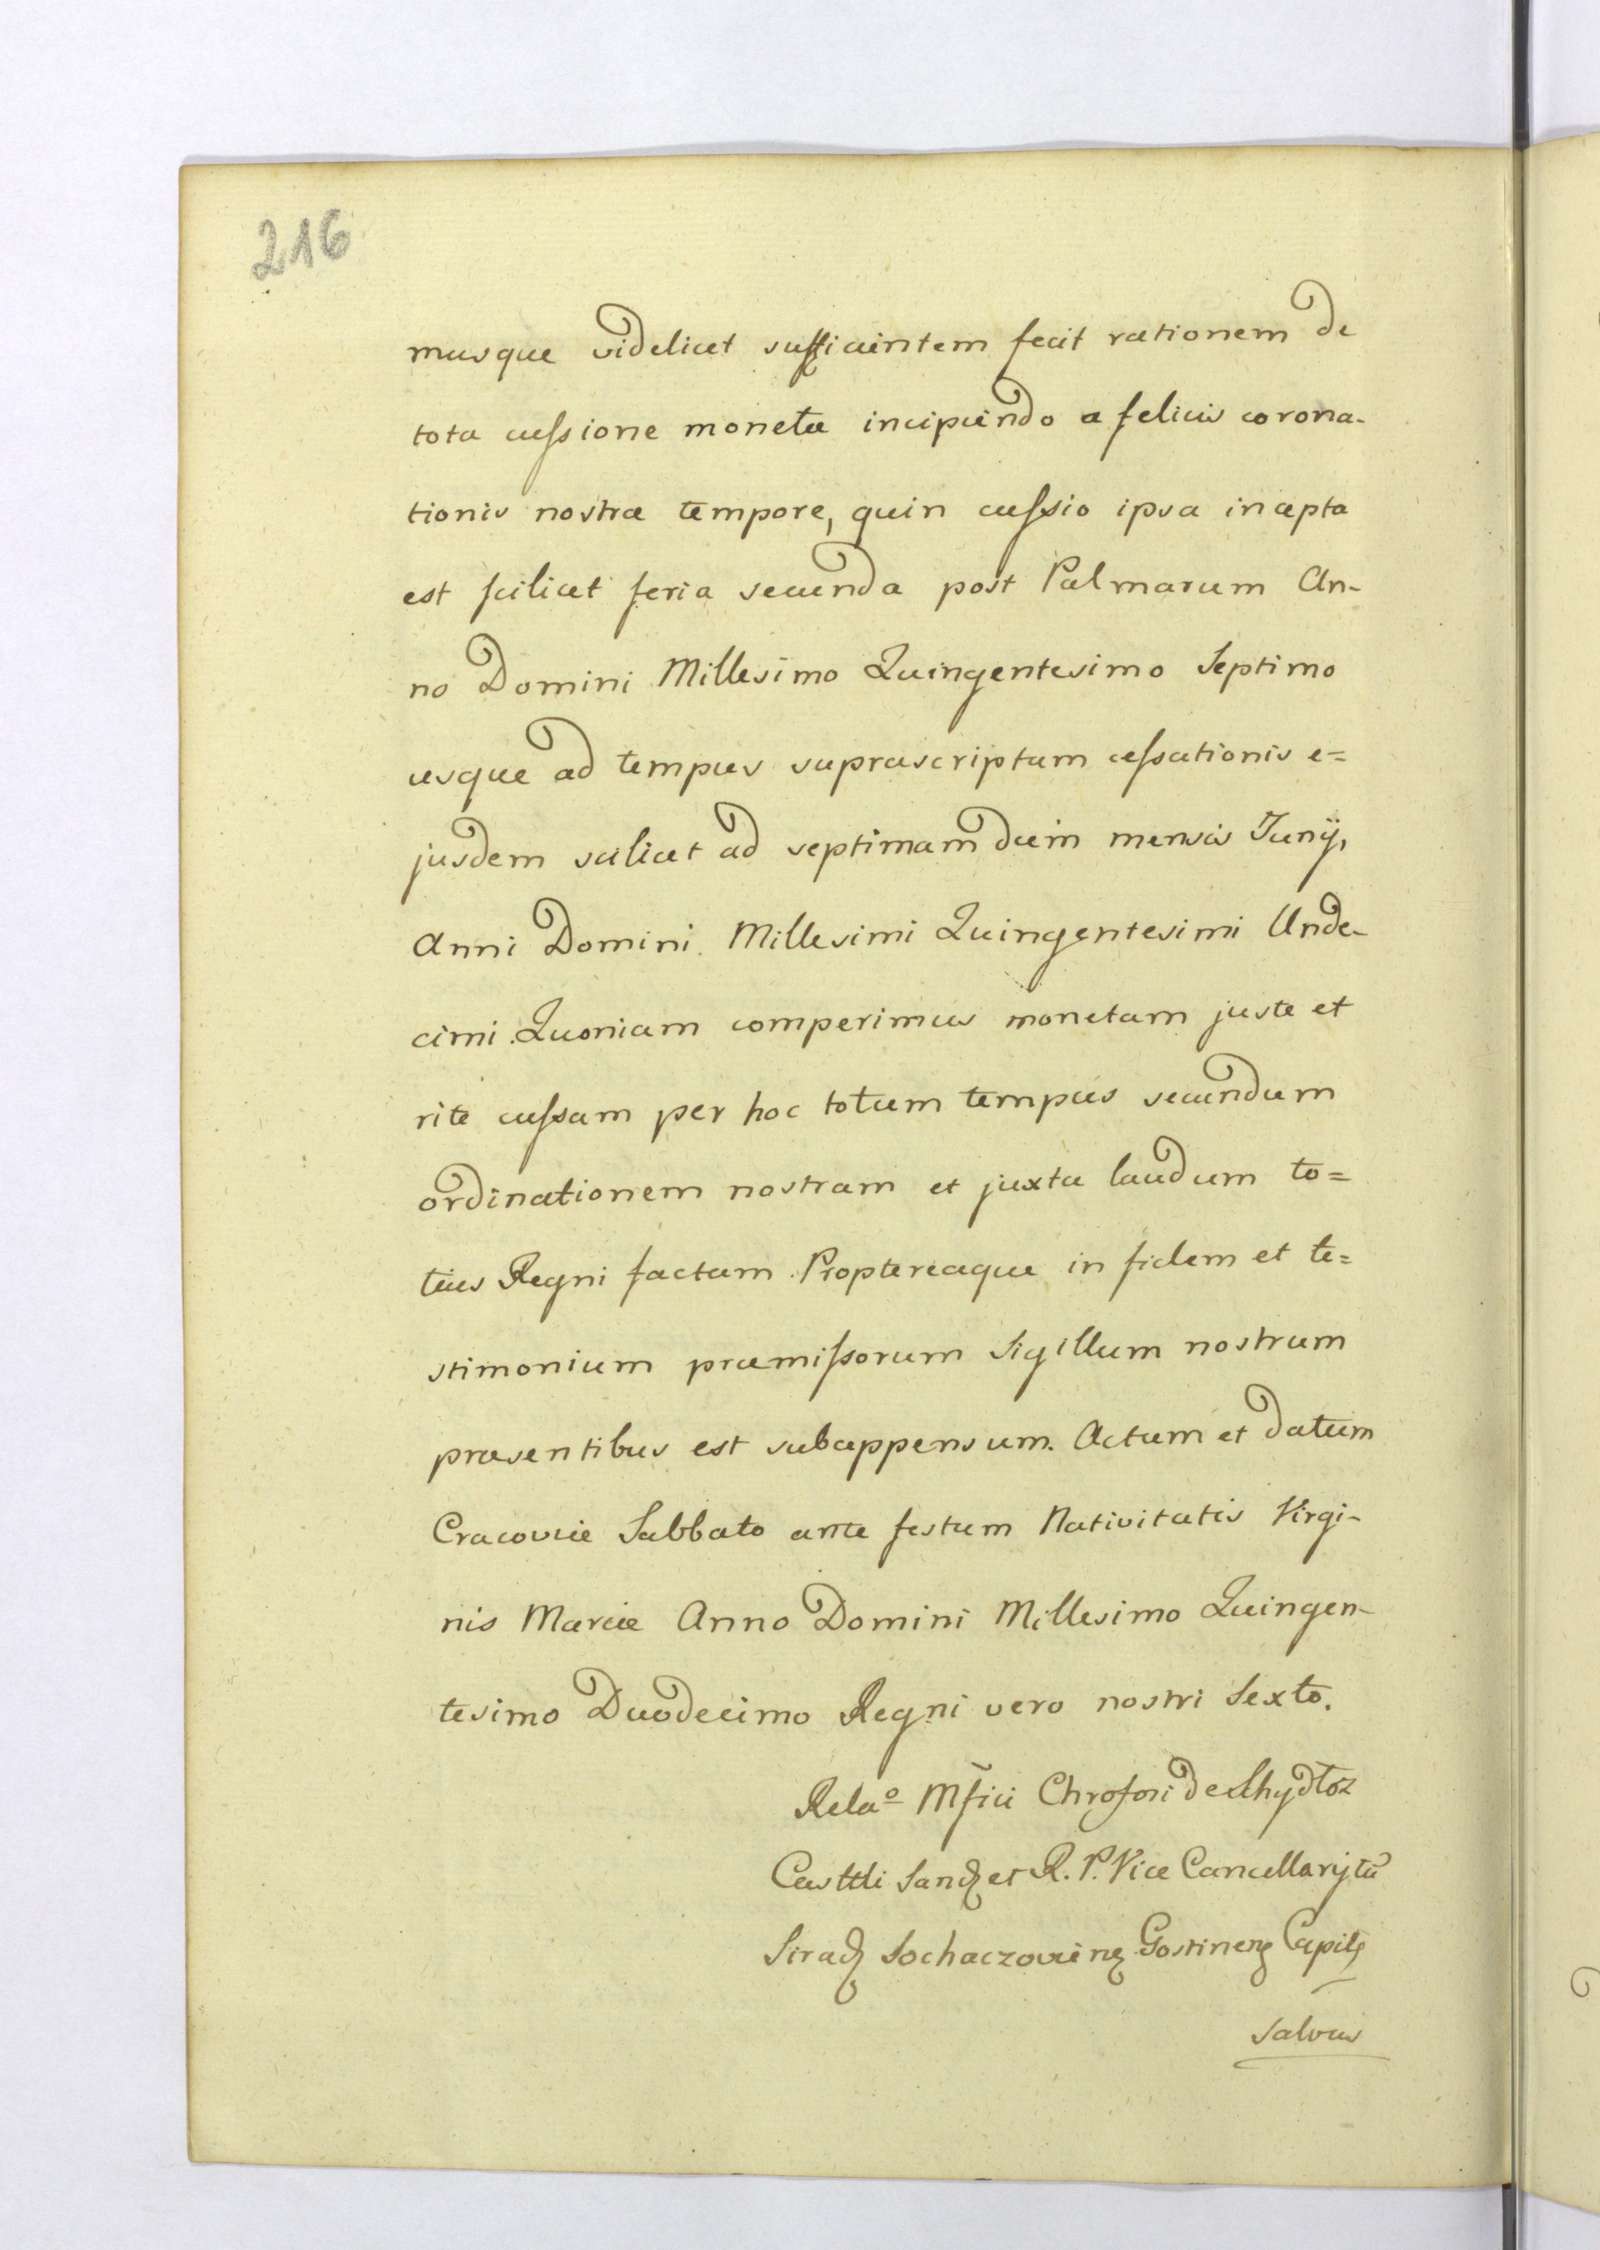 216
musque videlicet sufficientem fecit rationem de
tota cussione monetæ incipiendo a felicis corona-
tionis nostræ tempore, quin cussio ipsa incepta
est scilicet feria secunda post Palmarum An-
no Domini Millesimo Quingentesimo Septimo
usque ad tempus suprascriptum cessationis e=
jusdem scilicet ad septimam diem mensis Junij,
Anni Domini Millesimi Quingentesimi Unde-
cimi. Quoniam comperimus monetam juste et
rite cussam per hoc totum tempus secundum
ordinationem nostram et juxta laudum to=
tius Regni factam. Proptereaque in fidem et te=
stimonium præmissorum Sigillum nostrum
præsentibus est subappensum. Actum et datum
Cracoviæ Sabbato ante festum Nativitatis Virgi-
nis Mariæ Anno Domini Millesimo Quingen-
tesimo Duodecimo Regni vero nostri Sexto.
Relaº Mfici de
et R. P. Vice Cancellarij
Sirad Sochaczovien Gostinen Capit
salvis